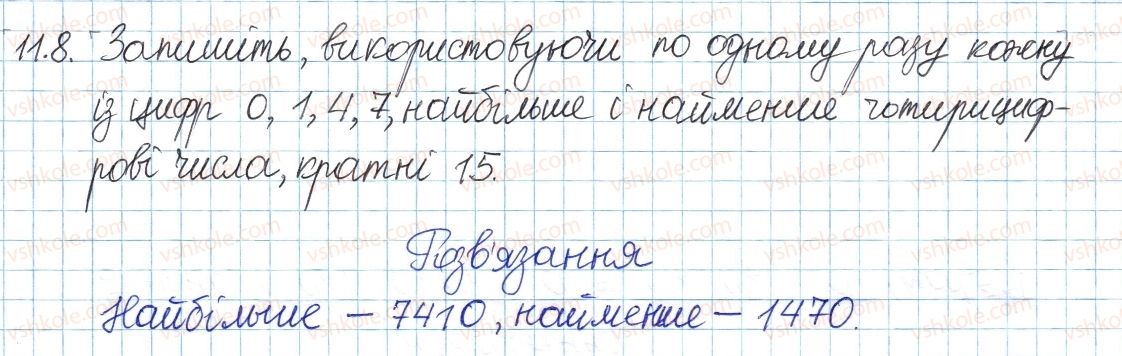 11.8. Запишіть, використовуючи по одному разу кожну
із цифр 0, 1, 4, 7, найбільше і найменше чотирициф-
рові числа, кратні 15.
Розв'язання
Найбільше – 7410, найменше – 1470.